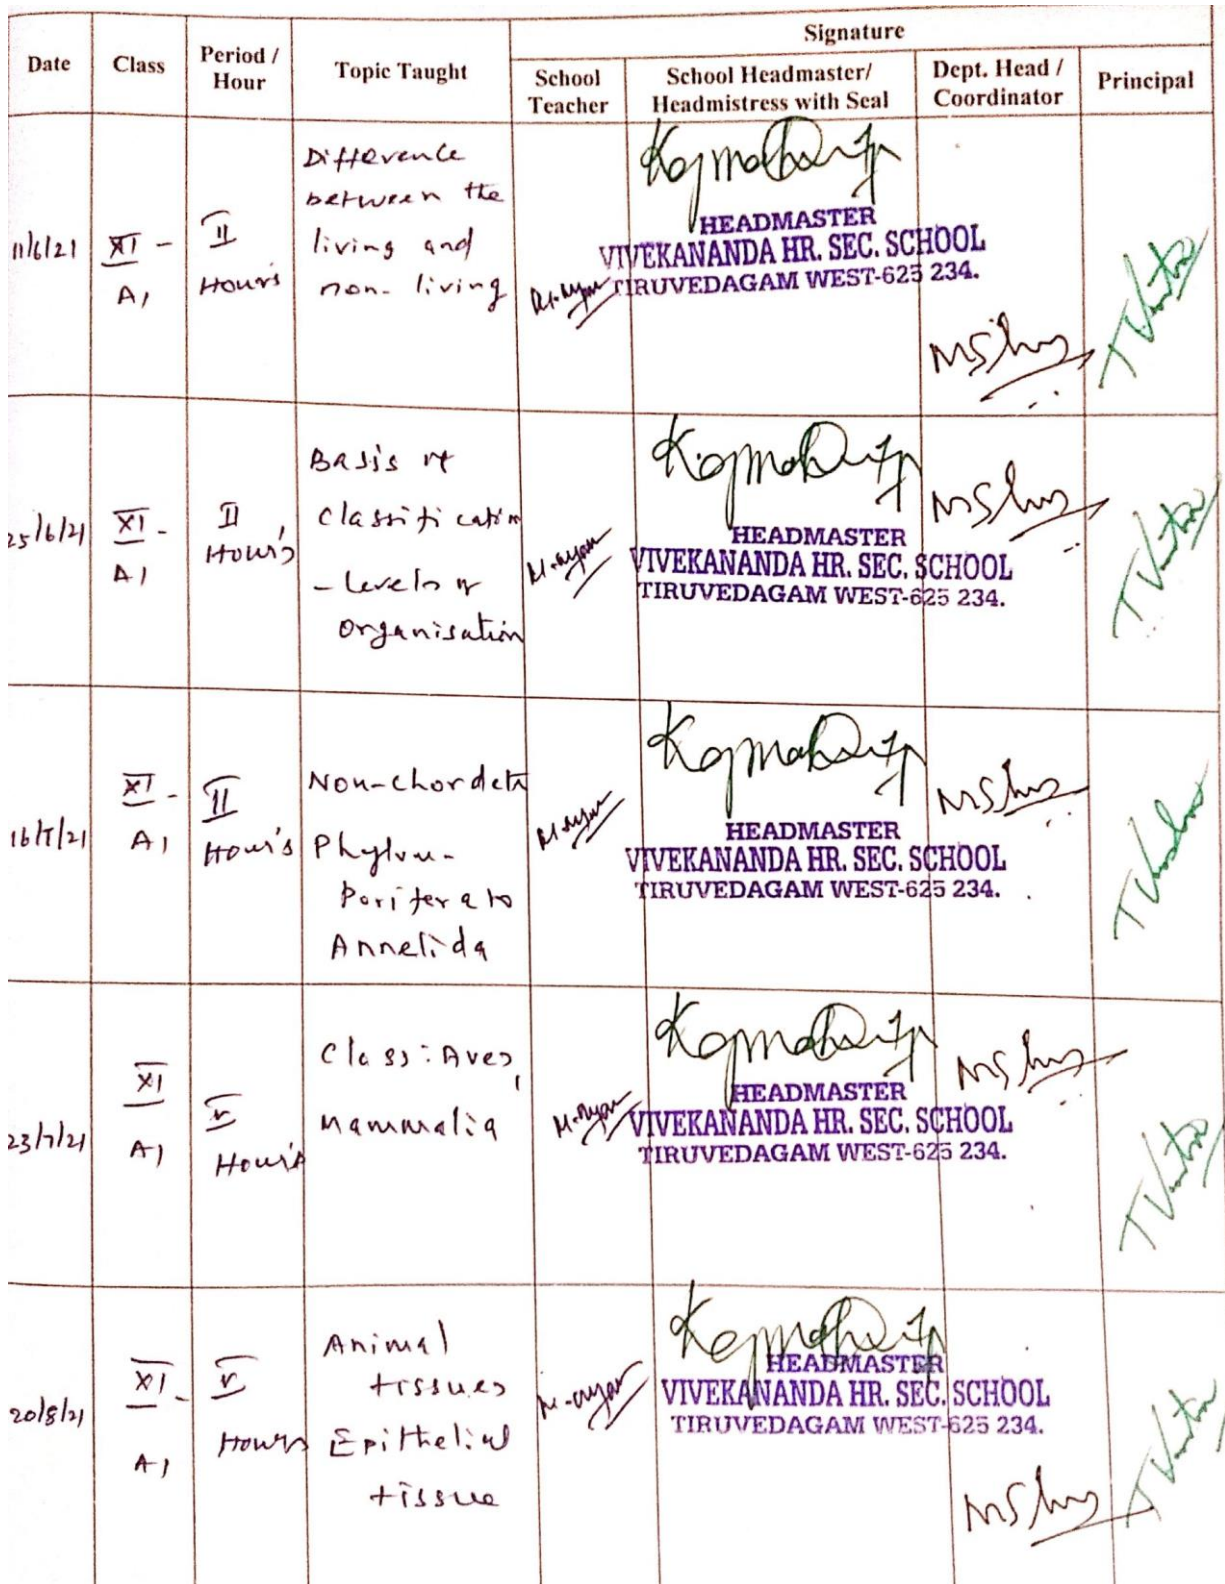 Signature
Date
Class
Period /
Hour
Topic Taught
School
Teacher
School Headmaster/
Headmistress with Seal
Dept. Head /
Coordinator
Principal
11/6/21
XI -
A1
II
Hour's
Difference
between the
living and
non-living
HEADMASTER
VIVEKANANDA HR. SEC. SCHOOL
TIRUVEDAGAM WEST-625 234.
25/6/21
XI -
A1
II
Hour's
Basis of
classification
- Levels of
organisation
HEADMASTER
VIVEKANANDA HR. SEC. SCHOOL
TIRUVEDAGAM WEST-625 234.
16/7/21
XI -
A1
II
Hour's
Non-Chordata
Phylum-
Porifera to
Annelida
HEADMASTER
VIVEKANANDA HR. SEC. SCHOOL
TIRUVEDAGAM WEST-625 234.
23/7/21
XI
A1
V
Hour's
Class: Aves,
Mammalia
HEADMASTER
VIVEKANANDA HR. SEC. SCHOOL
TIRUVEDAGAM WEST-625 234.
20/8/21
XI -
A1
V
Hours
Animal
tissues
Epithelial
tissue
HEADMASTER
VIVEKANANDA HR. SEC. SCHOOL
TIRUVEDAGAM WEST-625 234.